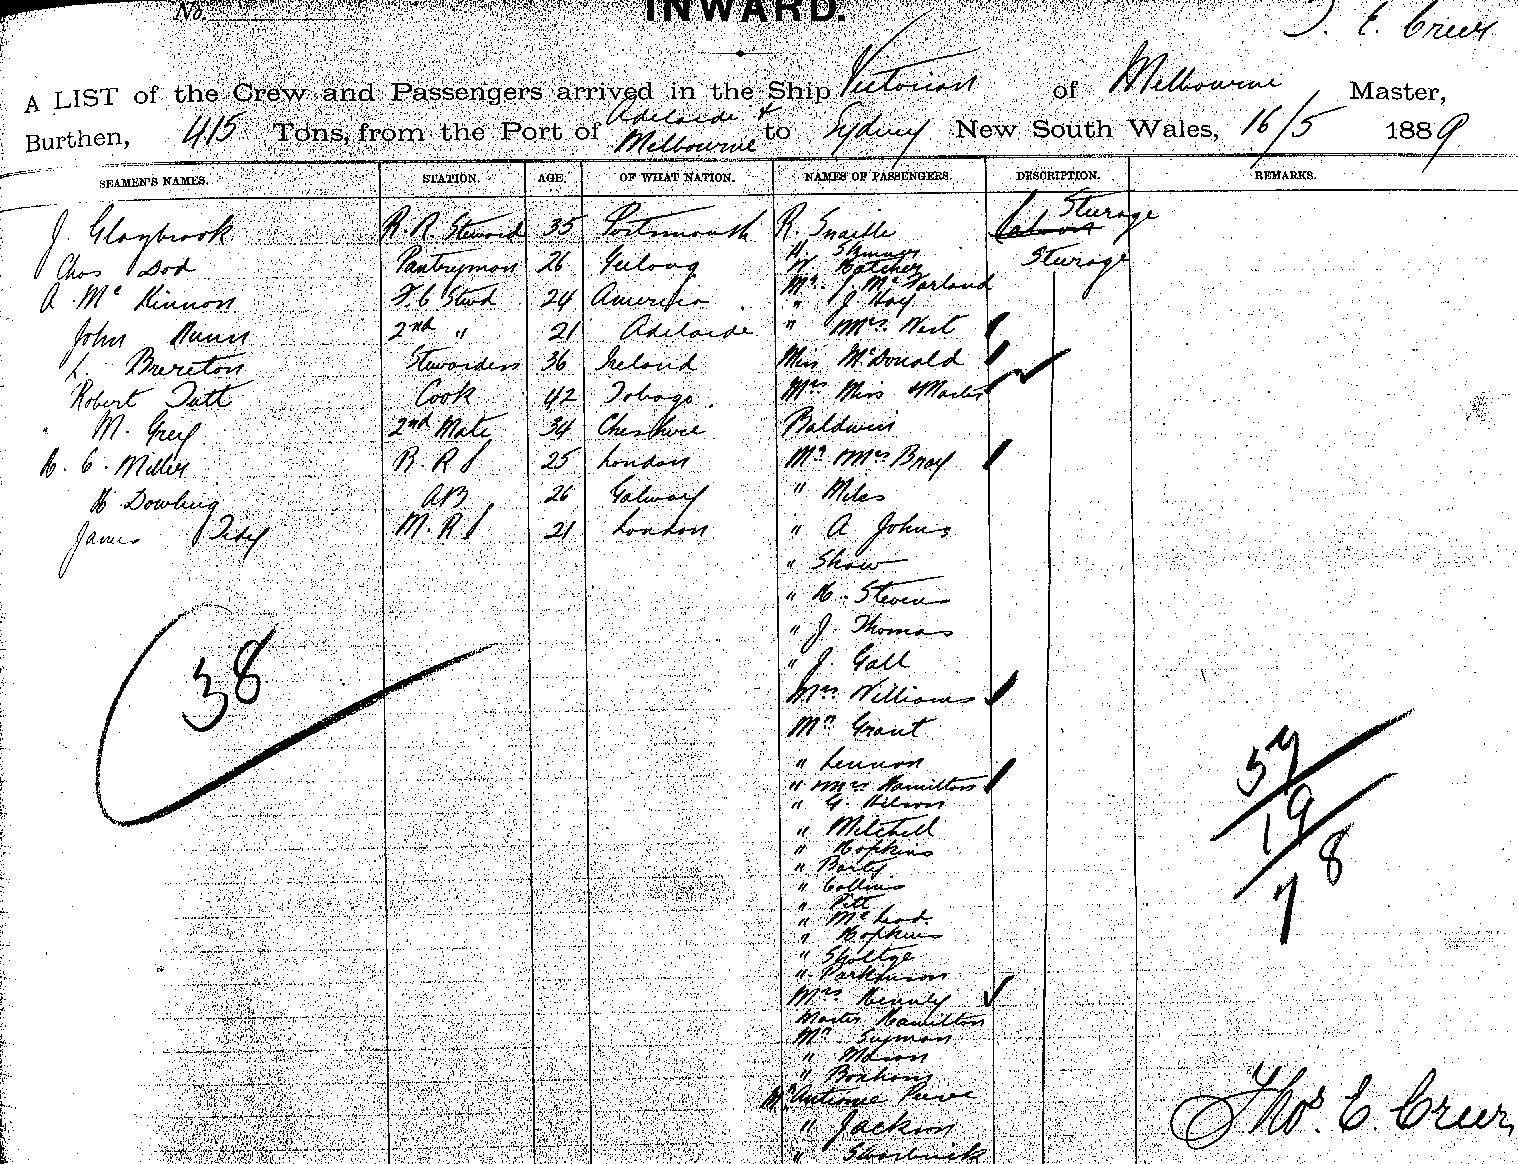 No.
INWARD.
T. E. Creer
A LIST of the Crew and Passengers arrived in the Ship Victorian of Melbourne Master,
Burthen, 415 Tons, from the Port of Adelaide & Melbourne to Sydney New South Wales, 16/5 1889
SEAMEN'S NAMES. STATION. AGE. OF WHAT NATION. NAMES OF PASSENGERS. DESCRIPTION. REMARKS.
J. Glaybrook R. R. Steward 35 Portsmouth R. Snaille Sturage
H. Skinner
Chas Dod Pantryman 26 Geelong W. Batcher Sturage
Mr. J. McFarland
A McKinnon F. C Stewd 24 America " J Hay
John Nunn 2nd " 21 Adelaide " Mrs. West
L. Brereton Stewardess 36 Ireland Miss McDonald
Robert Tutt Cook 42 Tobago. Mrs Miss & Master
" M. Grey 2nd Mate 34 Cheshire Baldwin
H. C. Miller B. R S 25 London Mr Mrs Bray
H Dowling AB 26 Galway " Miles
James Tidy M. R S 21 London " A Johns
" Shaw
" H. Stevens
" J. Thomas
" J. Gall
38
Mrs Williams
Mr Grant
" Lennon
" Mrs Hamilton
" G. Wilson
" Mitchell
" Hopkins
" Barty
" Collins
" Pitt
" McLeod
" Hopkins
" Sholtze
" Parkinson
Mrs Kenney
Master Hamilton
Mr Suyman
" Mason
" Bonham
Mr Antonie Perve
" Jackson
"
59
19
78
Thos. E. Creer